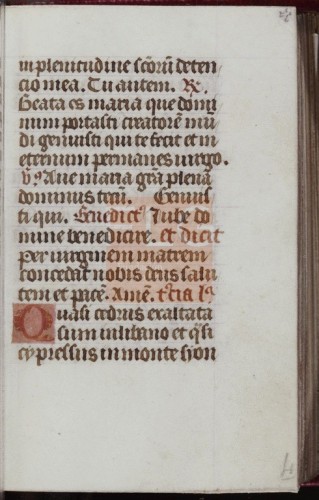 in plenitudine scōrū deten
cio mea. Tu autem. R.
Beata es maria que domi
num portasti creatorē mū
di genuisti qui te fecit et in
eternum permanes uirgo.
V. Aue maria grā plena
dominus tecū. Genuis
ti qui. Benedict. Iube do
mine benedicere. et dicit
Per uirginem matrem
concedat nobis deus salu
tem et pacē. Amē. t'cia l'
Quasi cedrus exaltata
sum in libano et q̄si
cypressus in monte syon